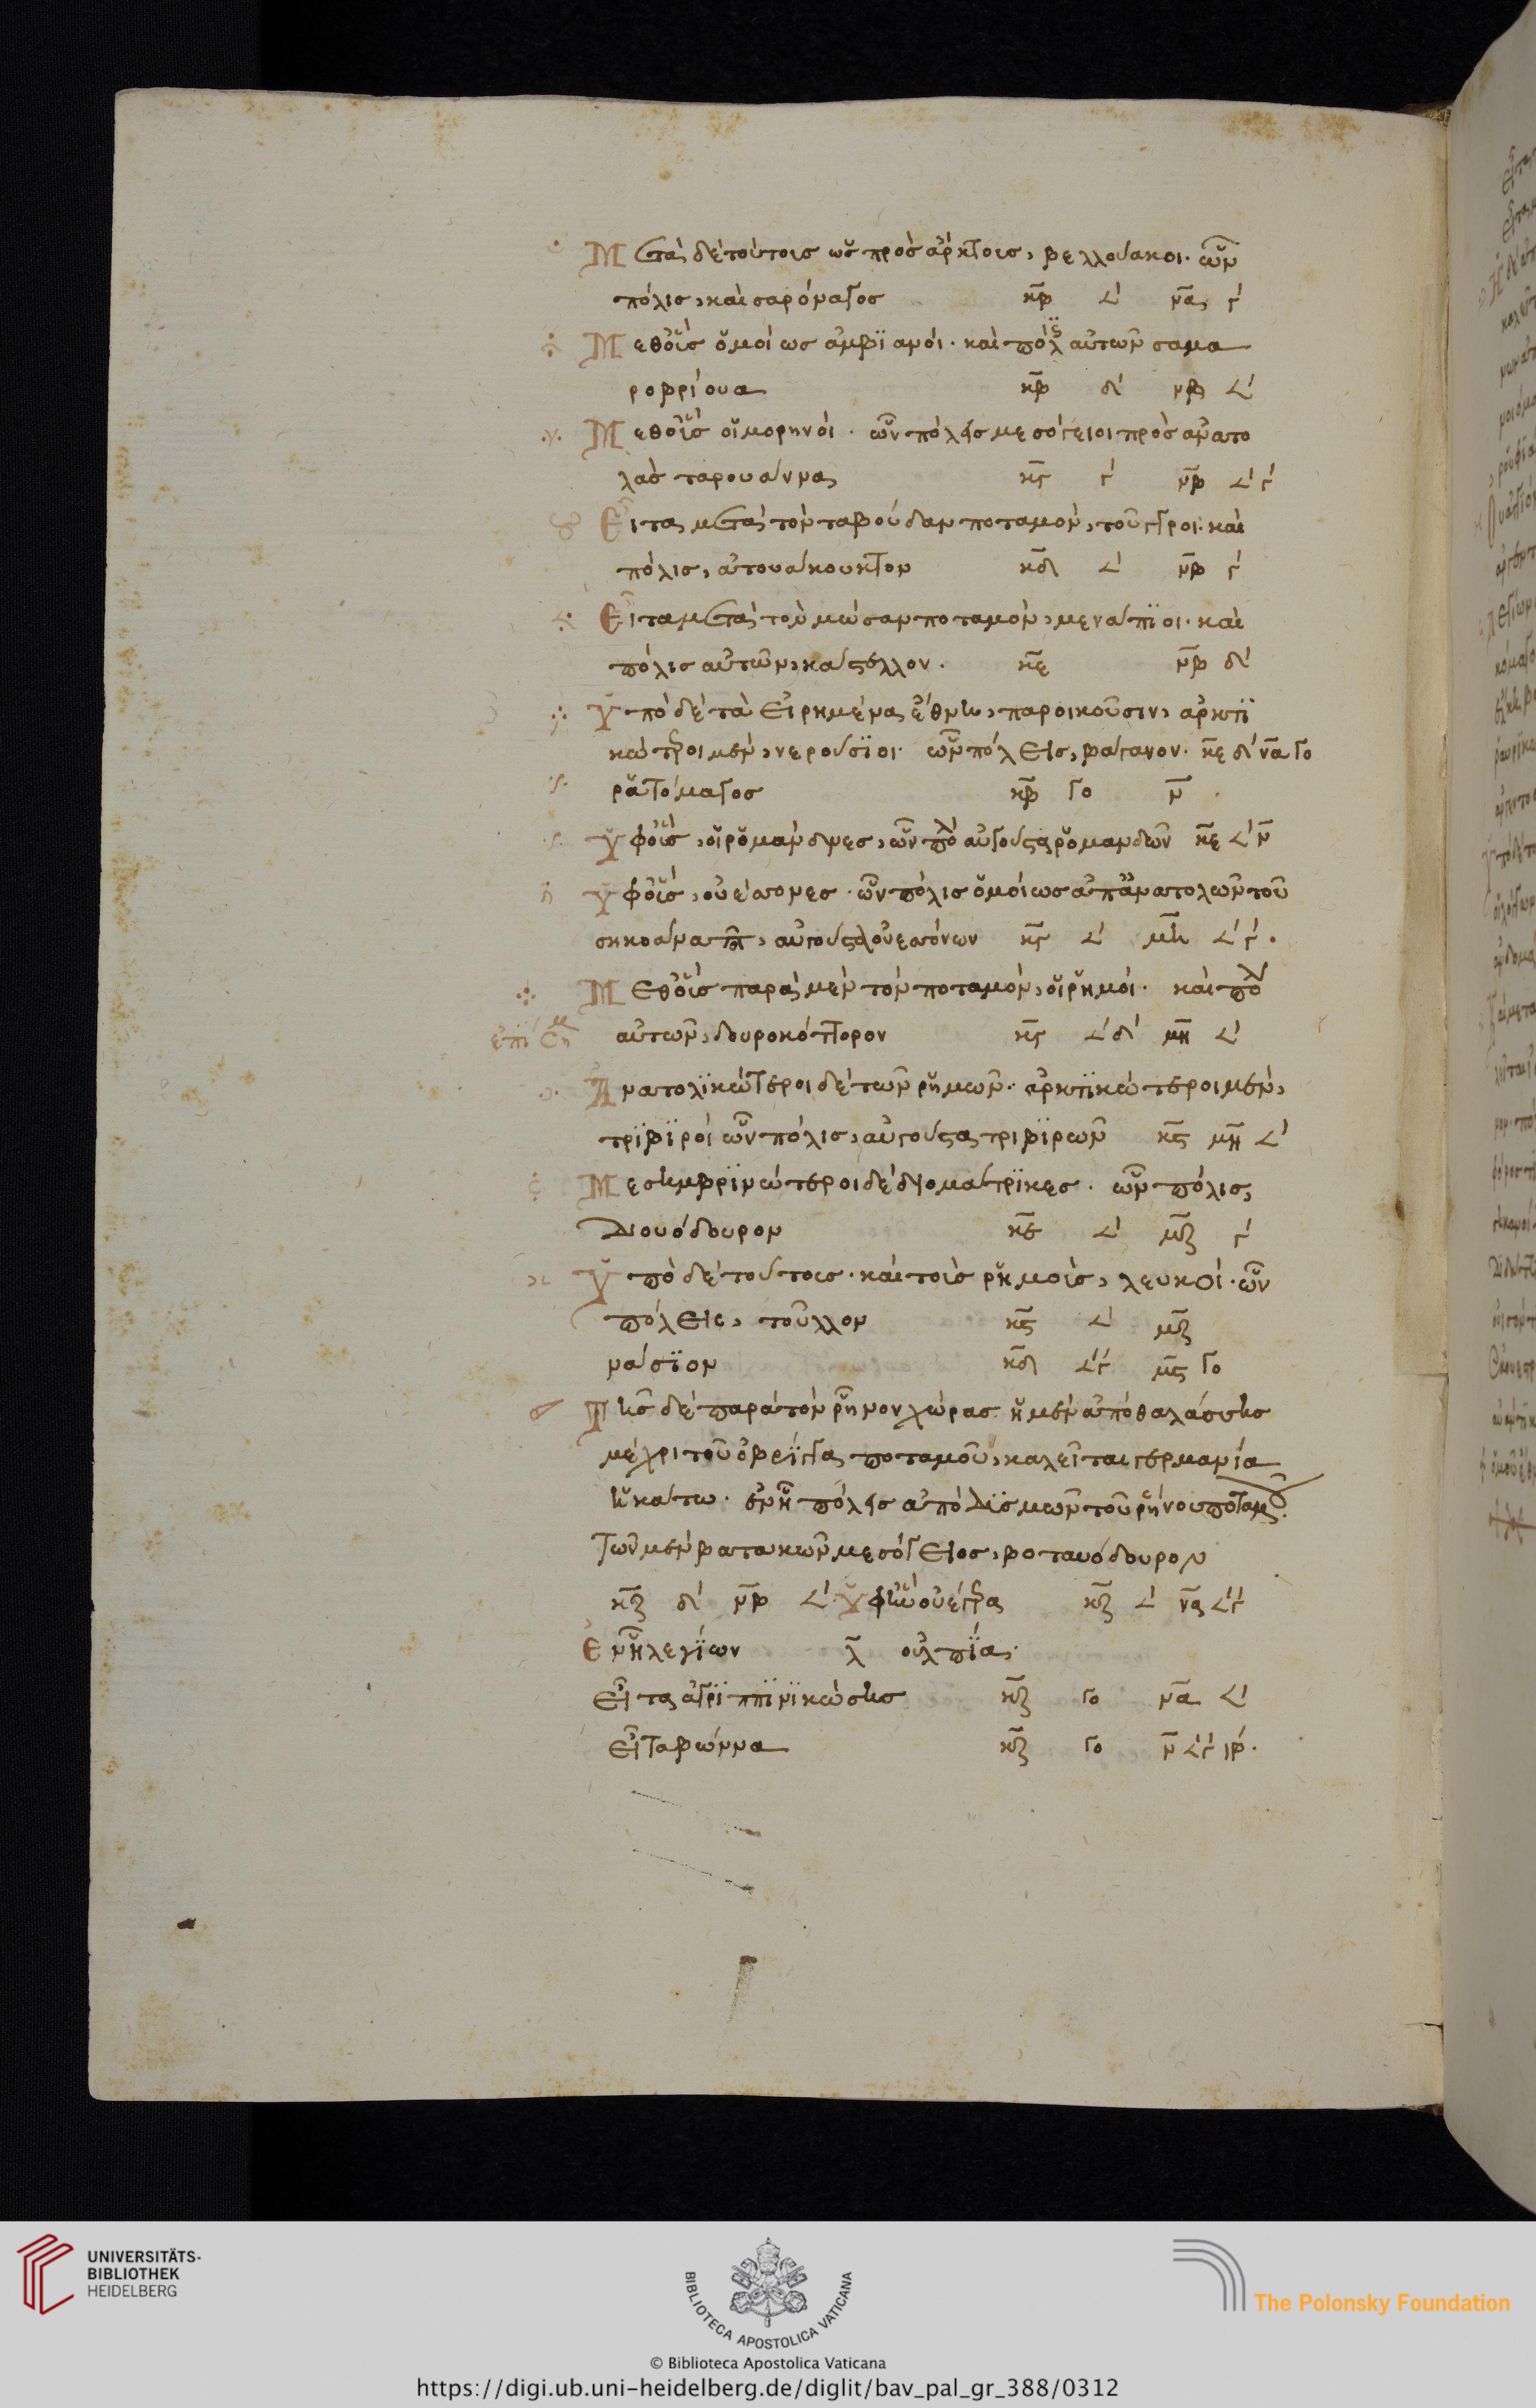 Μετὰ δὲ τούτοις ὡς πρὸς ἄρκτοις, βελλούακοι. ὧν
πόλις, καισαρόμαγος κβ ∠ʹ να γʹ
Μεθοὓς ὁμοίως ἀμβϊανοί. καὶ πόλις αὐτῶν σαμα
ροβρίουα κβ δʹ νβ ∠ʹ
Μεθοὓς οἱ μορηνοί. ὧν πόλις μεσόγειοι πρὸς ἀνατο
λὰς ταρουάννα κγ γʹ νβ ∠ʹγʹ
Εἶτα μετὰ τὸν ταβούδαν ποταμὸν, τοῦγγροι. καὶ
πόλις, ἀτουάκουκτον κδ ∠ʹ νβ γʹ
Εἶτα μετὰ τὸν μώσαν ποταμὸν, μενάπϊοι. καὶ
πόλις αὐτῶν, κάστελλον. κε νβ δʹ
Ὑπὸ δὲ τὰ εἰρημένα ἔθνη, παροικοῦσιν, ἀρκτϊ
κώτεροι μὲν, νερούσϊοι. ὧν πόλεις, βάγανον. κε δʹ να γο
ῥατόμαγος κβ γο ν
Ὑφοὓς, οἱ ῥομάνδυες, ὧν πόλ αὐγούστα ῥομανδῶν κε ∠ʹ ν
Ὑφοὓς, οὐέσσονες. ὧν πόλις ὁμοίως ἀπανατολῶν τοῦ
σηκοάνα ποτ, αὐγούστα οὐεσσόνων κγ ∠ʹ μη ∠ʹγʹ.
Μεθοὓς παρὰ μὲν τὸν ποταμὸν, οἱ ῥημοί. καὶ πόλ
αὐτῶν, δουροκόττορον κγ ∠ʹδʹ μη ∠ʹ
Ἀνατολϊκώτεροι δὲ τῶν ῥημῶν. ἀρκτϊκώτεροι μὲν,
τρϊβϊροί ὧν πόλις, αὐγούστα τριβϊρῶν κϛ μη ∠ʹ
Μεσημβρϊνώτεροι δὲ διομάτρϊκες. ὧν πόλις,
Διουόδουρον κε ∠ʹ μζ γʹ
Ὑπὸ δὲ τούτοις. καὶ τοῖς ῥημοῖς, λευκοί. ὧν
πόλεις, τοῦλλον κϛ ∠ʹ μζ
νάσϊον κδ ∠ʹγʹ μϛ γο
Τῆς δὲ παρὰ τὸν ῥῆνον χώρας. ἡ μὲν ἀπὸ θαλάσσης
μέχρι τοῦ ὀβρίγγα ποταμοῦ, καλεῖται γερμανία
ἡ κάτω. ἐν ᾗ πόλεις ἀπὸ δϋσμῶν τοῦ ῥήνου ποταμοῦ.
Τῶν μὲν βατακῶν μεσόγειος, βοταυόδουρον
κζ δʹ νβ ∠ʹ Ὑφὴν οὐέτερα κζ ∠ʹ να ∠ʹγʹ
Ἐν ᾗ λεγίων λ οὐλπία.
Εἶτα ἀγρϊππϊνϊκώσης κζ γο να ∠ʹ
Εἶτα βώννα κζ γο ν ∠ʹγʹιβ.
UNIVERSITÄTS-
BIBLIOTHEK
HEIDELBERG
BIBLIOTECA APOSTOLICA VATICANA
The Polonsky Foundation
© Biblioteca Apostolica Vaticana
https://digi.ub.uni-heidelberg.de/diglit/bav_pal_gr_388/0312